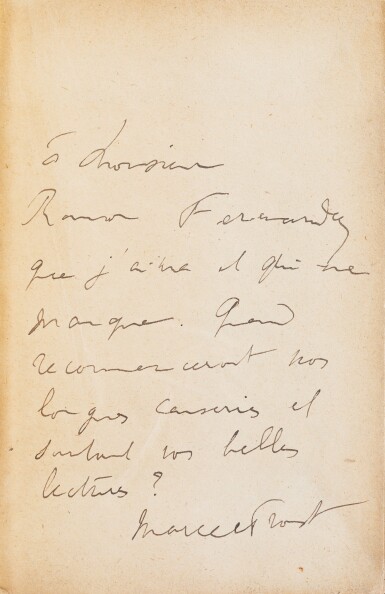 à Monsieur
Ramon Fernandez
que j'aime et qui me
manque. Quand
recommenceront nos
longues causeries et
surtout vos belles
lectures ?
Marcel Proust